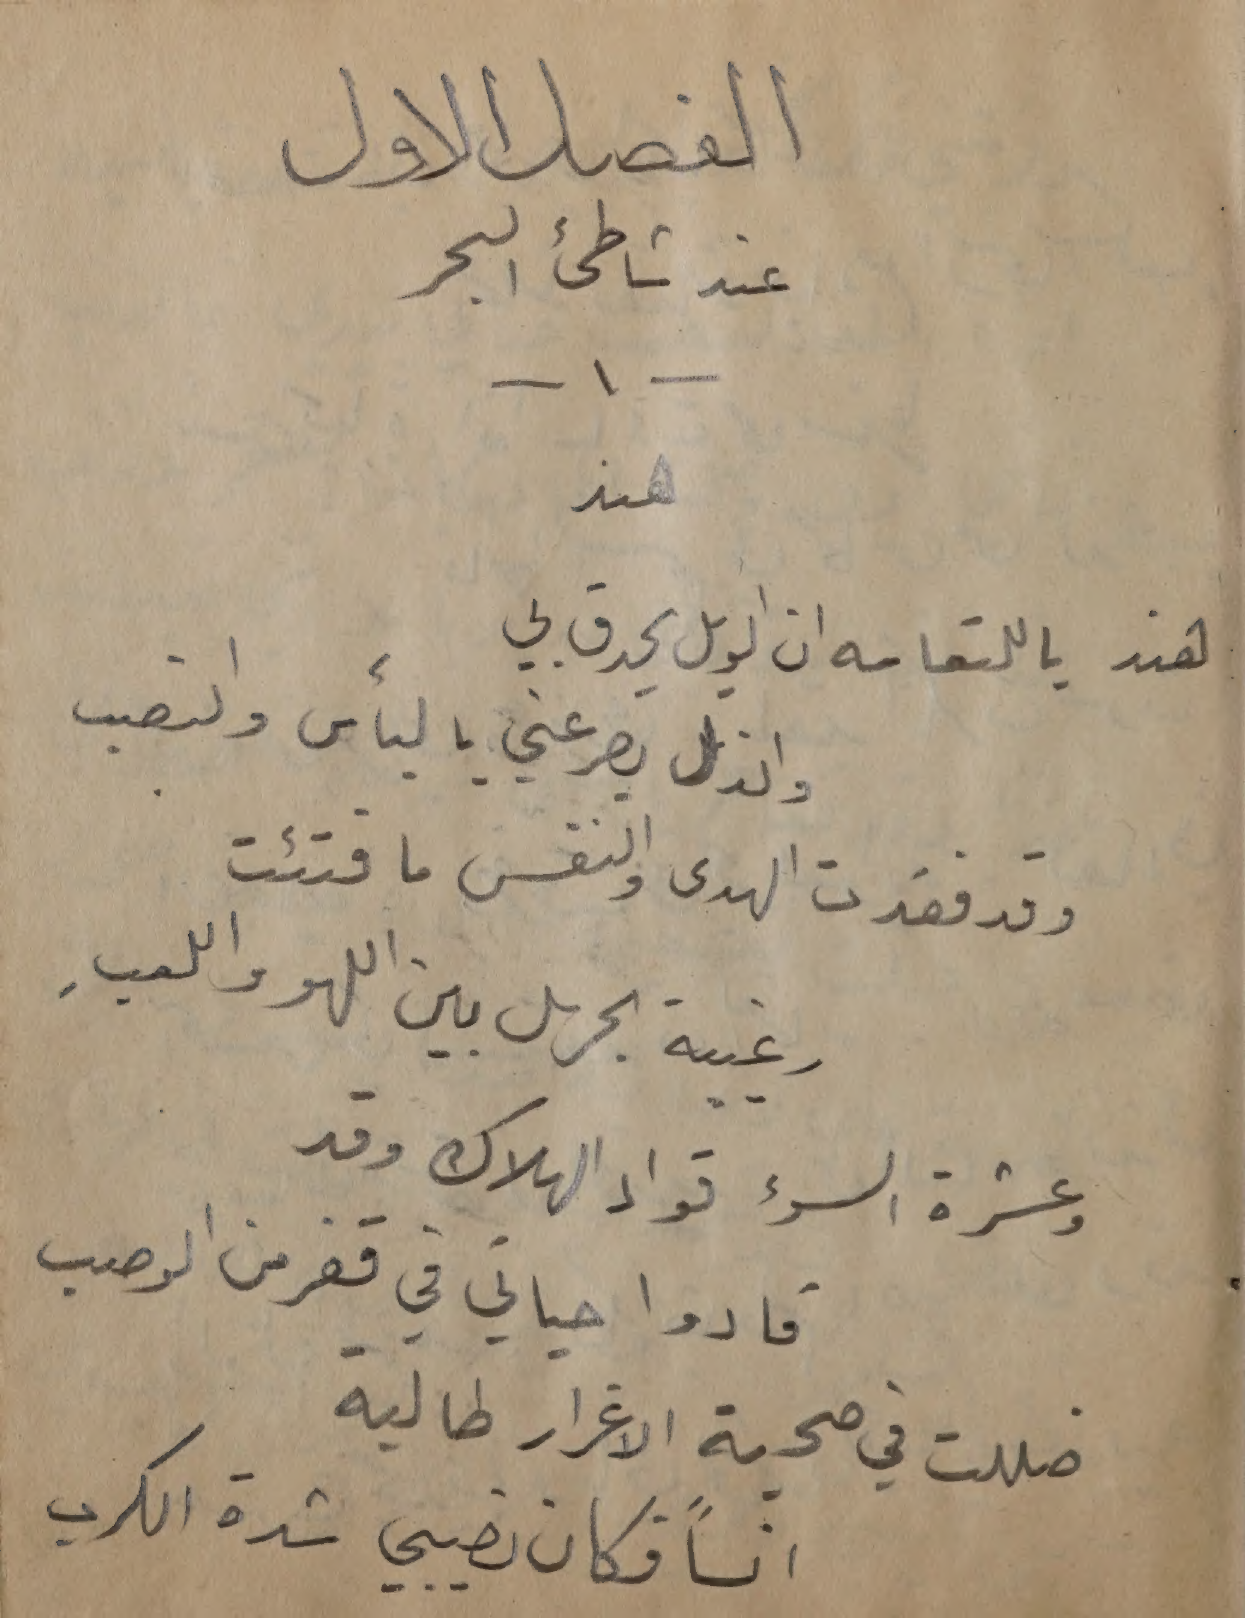 الفصل الاول
عند شاطئ البحر
— ١ —
هند
هند ياللتعاسه ان الويل يحدق بي
والذل يصرعني باليأس والنصب
وقد فقدت الهدى والنفس ما فتئت
رغيبة بين اللهو واللعبِ
وعشرة السوء قواد الهلاك وقد
قادوا حياتي في قفر من الوصب
ضللت في صحبة الاغرار طالبة
انساً فكان نصيبي شدة الكرب